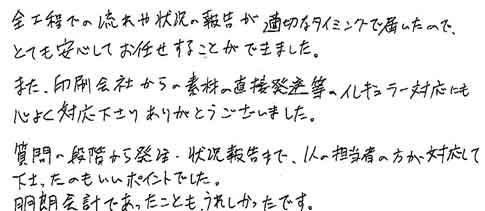 全工程での流れや状況の報告が適切なタイミングで届いたので、
とても安心してお任せすることができました。
また、印刷会社からの素材の直接発送等のイレギュラー対応にも
心よく対応下さりありがとうございました。
質問の段階から発注・状況報告まで、1人の担当者の方が対応して
下さったのもいいポイントでした。
明朗会計であったことも、うれしかったです。